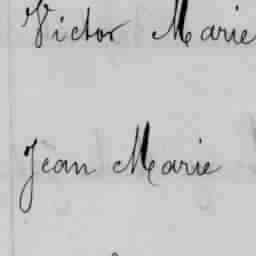 Victor Marie
Jean Marie